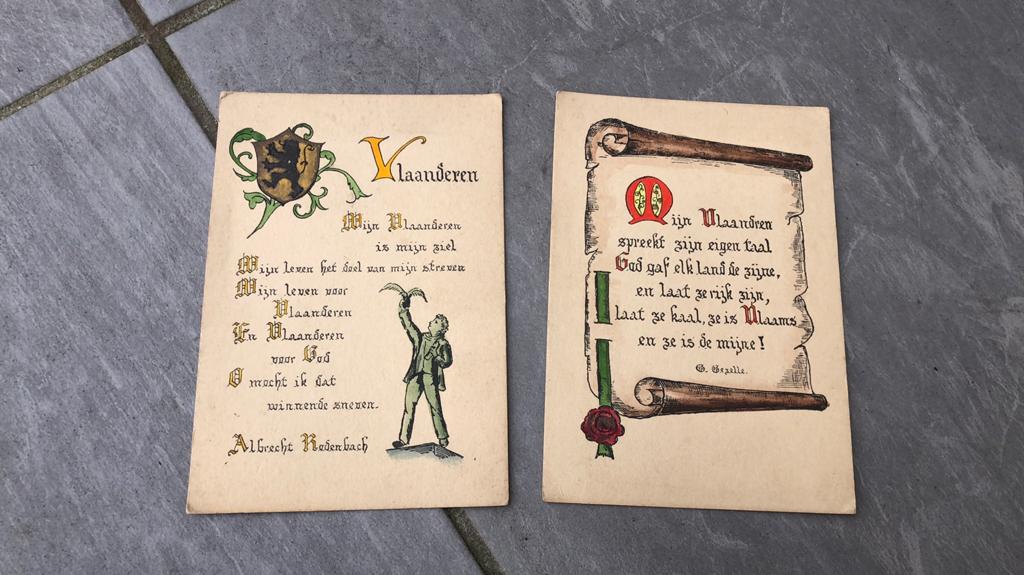 Vlaanderen
Mijn Vlaanderen
is mijn ziel
Mijn leven het doel van mijn streven
Mijn leven voor
Vlaanderen
En Vlaanderen
voor God
O mocht ik dat
winnende sneven.
Albrecht Rodenbach
Mijn Vlaandren
spreekt zijn eigen taal
God gaf elk land de zijne,
en laat ze rijk zijn,
laat ze kaal, ze is Vlaams
en ze is de mijne!
G. Gezelle.